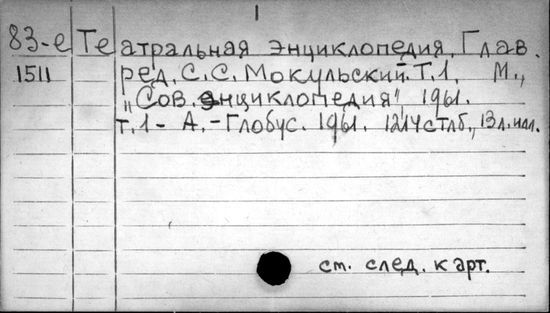 1
83-е Театральная энциклопедия. Глав.
1511 ред. С.С. Мокульский. Т.1. М.,
„Сов. энциклопедия", 1961.
т.1 – А. – Глобус. 1961. 1214 стлб., 13 л. илл.
см. след. карт.